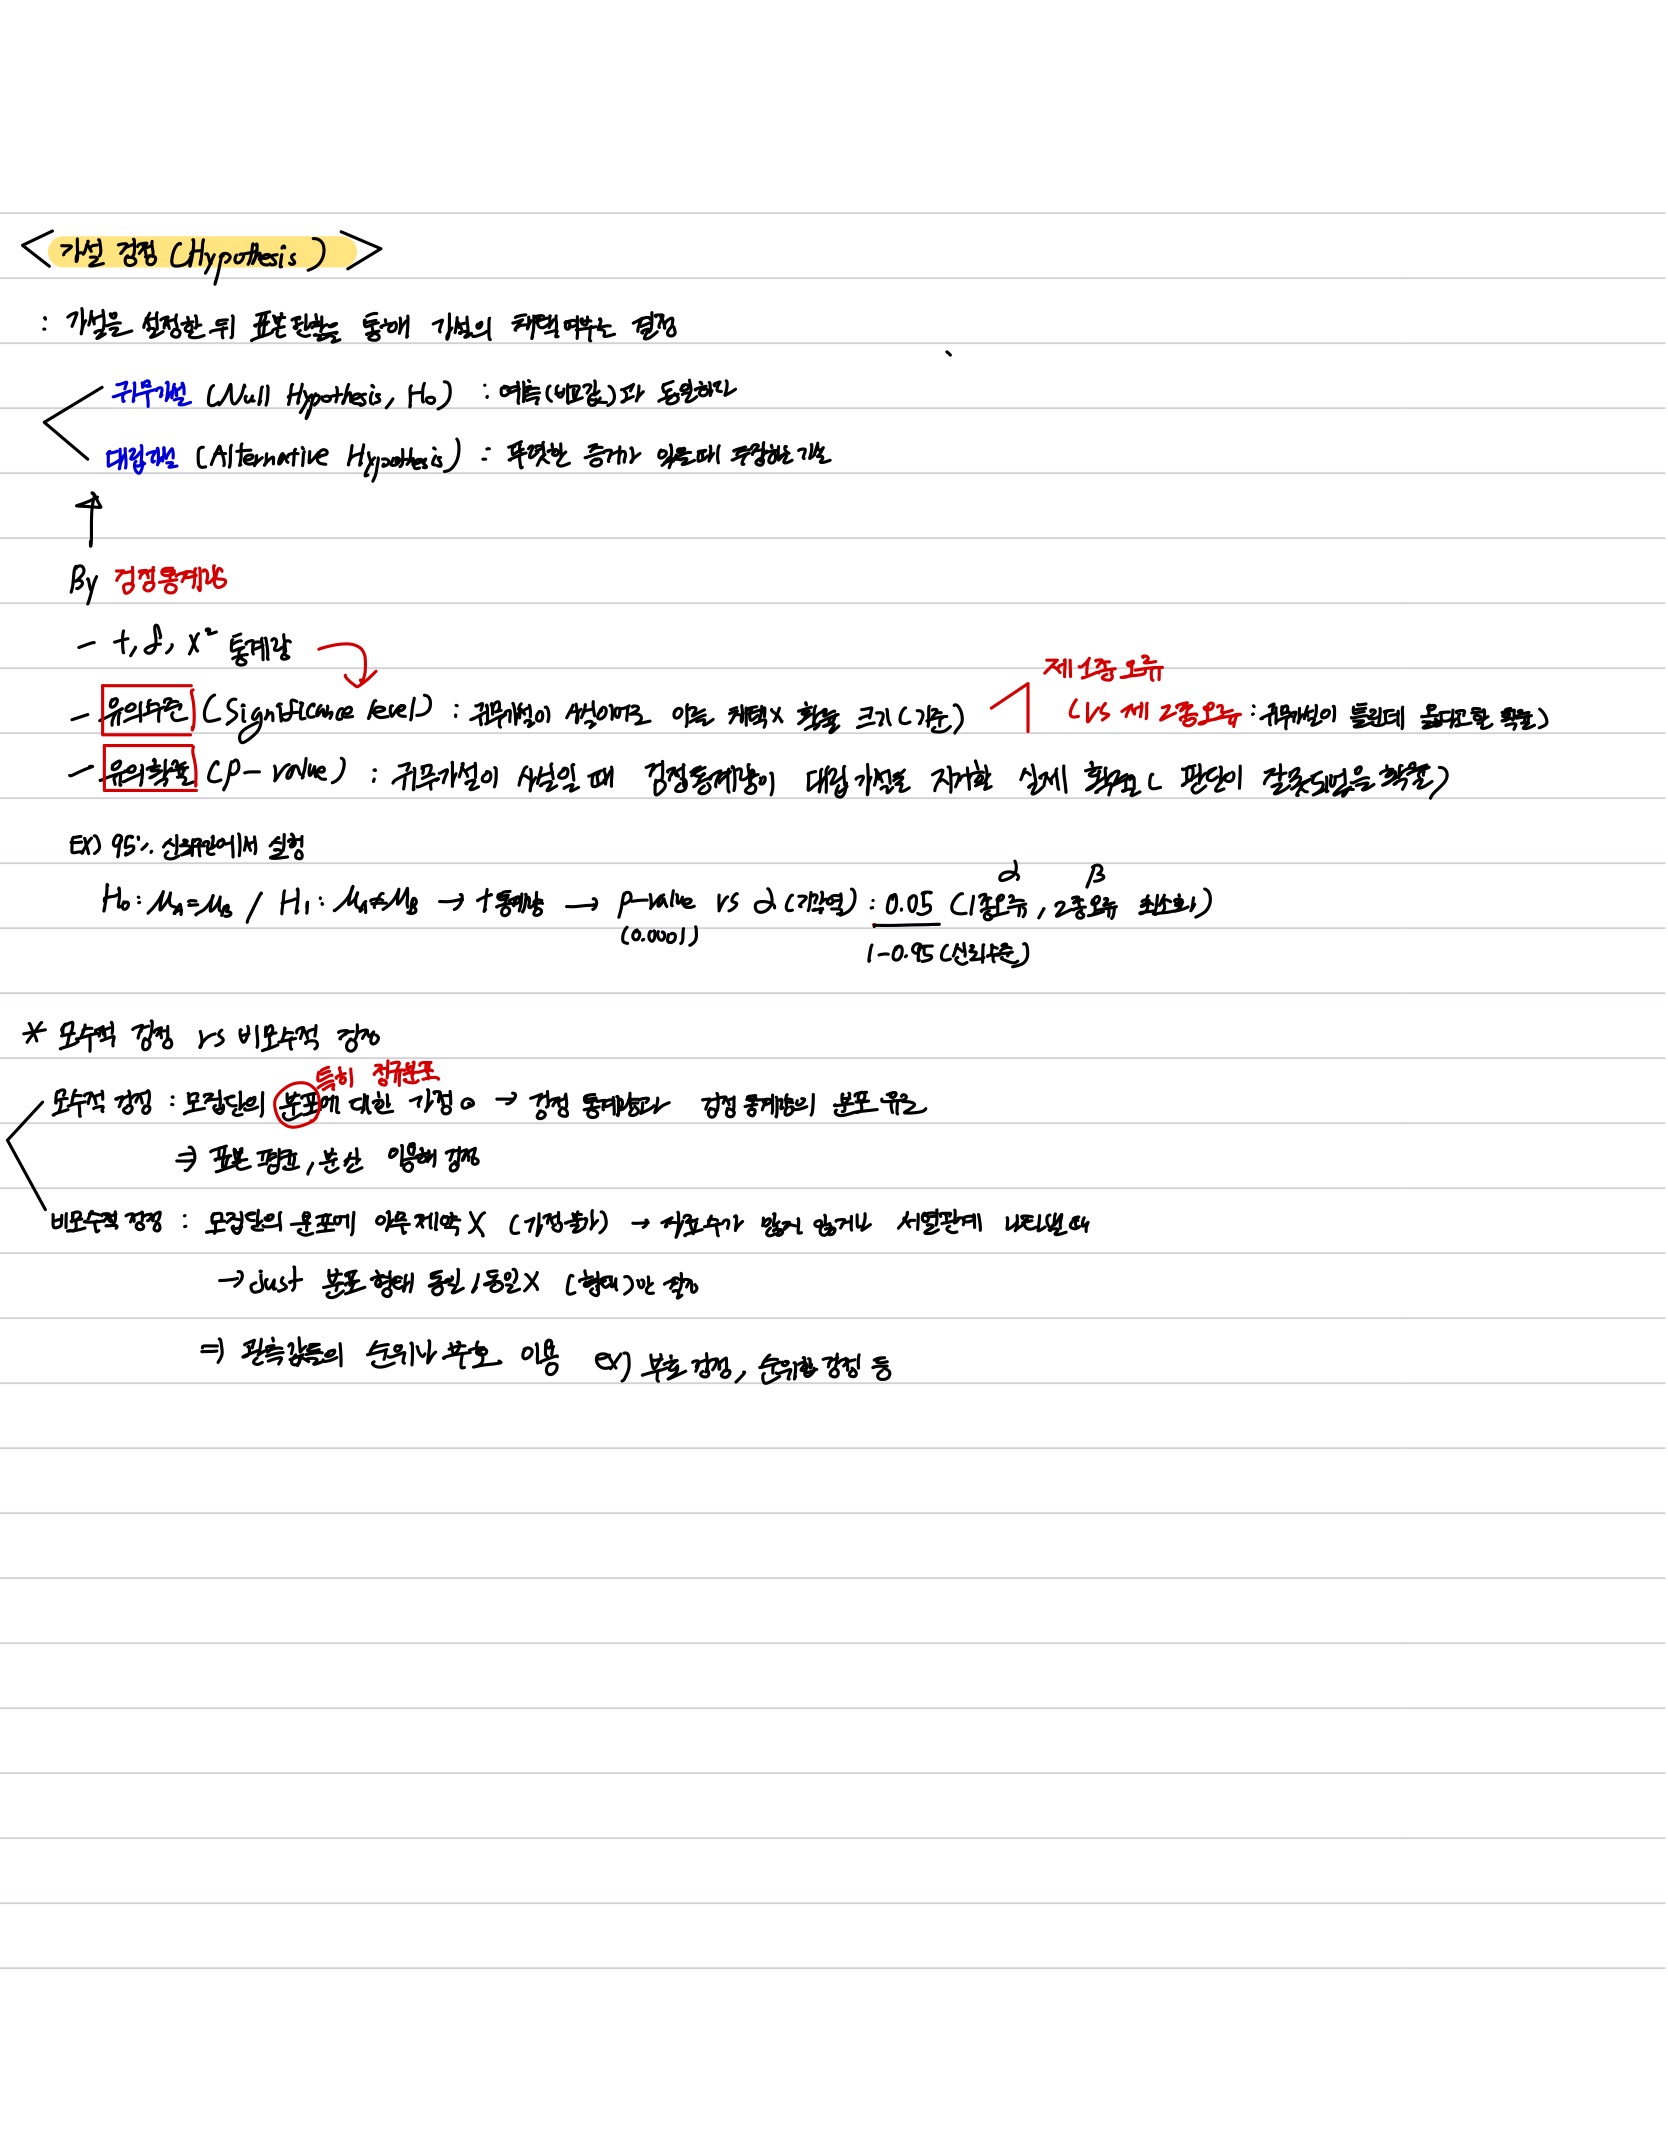 <가설 검정 (Hypothesis)>
: 가설을 설정한 뒤 표본관찰을 통해 가설의 채택여부를 결정
귀무가설 (Null Hypothesis, H₀) : 예측(비교값)과 동일하다
대립가설 (Alternative Hypothesis) : 뚜렷한 증거가 있을때 주장하는 가설
↑
By 검정통계량
- t, f, χ² 통계량
제 1종 오류
- 유의수준 (Significance level) : 귀무가설이 사실인데도 이를 채택X 확률 크기 (기준) (vs 제 2종오류 : 귀무가설이 틀린데 옳다고할 확률)
- 유의확률 (P-value) : 귀무가설이 사실일 때 검정통계량이 대립가설을 지지할 실제 확률 ( 판단이 잘못되었을 확률)
EX) 95% 신뢰구간에서 실험
α β
H₀ : μA = μB / H₁ : μA ≠ μB → t통계량 → p-value vs α (기각역) : 0.05 (1종오류, 2종오류 최소화)
(0.0001) 1-0.95 (신뢰수준)
* 모수적 검정 vs 비모수적 검정
특히 정규분포
모수적 검정 : 모집단의 분포에 대한 가정 o → 검정 통계량과 검정 통계량의 분포 유도
⇒ 표본 평균, 분산 이용해 검정
비모수적 검정 : 모집단의 분포에 아무 제약 X (가정불가) → 자료수가 많지 않거나 서열관계 나타낼 때
→ just 분포 형태 동일 / 동일X (형태)만 설정
⇒ 관측값들의 순위나 부호 이용 ex) 부호 검정, 순위합 검정 등